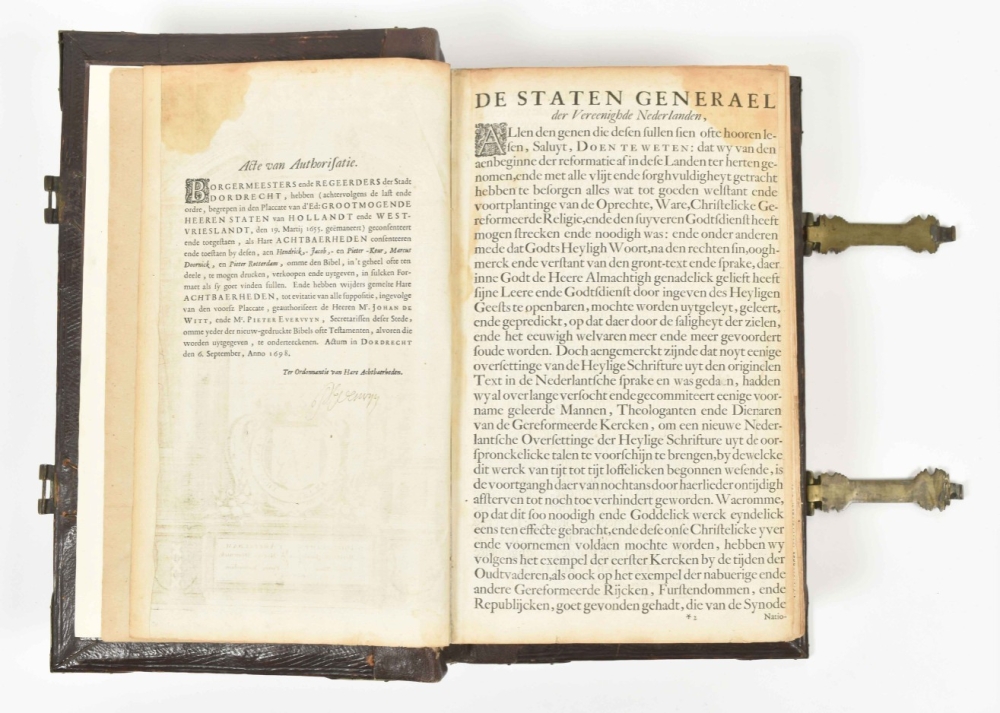 Acte van Authorisatie.
BORGERMEESTERS ende REGEERDERS der Stadt
DORDRECHT, hebben (achtervolgens de last ende
ordre, begrepen in den Placcate van d'Ed: GROOTMOGENDE
HEEREN STATEN van HOLLANDT ende WEST-
VRIESLANDT, den 19. Martij 1655. geëmaneert) geconsenteert
ende toegestaen, als Hare ACHTBAERHEDEN consenteeren
ende toestaen by desen, aen Hendrick,- Jacob,- en Pieter -Keur, Marcus
Doornick, en Pieter Rotterdam, omme den Bibel, in 't geheel ofte ten
deele, te mogen drucken, verkoopen ende uytgeven, in sulcken For-
mart als sy goet vinden sullen. Ende hebben wijders gemelte Hare
ACHTBAERHEDEN, tot evitatie van alle suppositie, ingevolge
van den voorsz Placcate, geauthoriseert de Heeren Mr. JOHAN DE
WITT, ende Mr. PIETER EVERWYN, Secretarissen deser Stede,
omme yeder der nieuw-gedruckte Bibels ofte Testamenten, alvoren die
worden uytgegeven, te onderteeckenen. Actum in DORDRECHT
den 6. September, Anno 1698.
Ter Ordonnantie van Hare Achtbaerheden.
DE STATEN GENERAEL
der Vereenighde Nederlanden,
ALlen den genen die desen sullen sien ofte hooren le-
sen, Saluyt, DOEN TE WETEN: dat wy van den
aenbeginne der reformatie af in dese Landen ter herten ge-
nomen, ende met alle vlijt ende sorghvuldigheyt getracht
hebben te besorgen alles wat tot goeden welstant ende
voortplantinge van de Oprechte, Ware, Christelicke Ge-
reformeerde Religie, ende den suyveren Godtsdienst heeft
mogen strecken ende noodigh was: ende onder anderen
mede dat Godts Heyligh Woort, na den rechten sin, oogh-
merck ende verstant van den gront-text ende sprake, daer
inne Godt de Heere Almachtigh genadelick gelieft heeft
sijne Leere ende Godtsdienst door ingeven des Heyligen
Geests te openbaren, mochte worden uytgeleyt, geleert,
ende gepredickt, op dat daer door de saligheyt der zielen,
ende het eeuwigh welvaren meer ende meer gevoordert
soude worden. Doch aengemerckt zijnde dat noyt eenige
oversettinge van de Heylige Schrifture uyt den originelen
Text in de Nederlantsche sprake en was gedaen, hadden
wy al over lange versocht ende gecommiteert eenige voor-
name geleerde Mannen, Theologanten ende Dienaren
van de Gereformeerde Kercken, om een nieuwe Neder-
lantsche Oversettinge der Heylige Schrifture uyt de oor-
spronckelicke talen te voorschijn te brengen, by dewelcke
dit werck van tijt tot tijt loffelicken begonnen wesende, is
de voortgangh daer van nochtans door haerlieder ontijdigh
afsterven tot noch toe verhindert geworden. Waeromme,
op dat dit soo noodigh ende Goddelick werck eyndelick
eens ten effecte gebracht, ende dese onse Christelicke yver
ende voornemen voldaen mochte worden, hebben wy
volgens het exempel der eerster Kercken by de tijden der
Oudtvaderen, als oock op het exempel der nabuerige ende
andere Gereformeerde Rijcken, Furstendommen, ende
Republijcken, goet gevonden gehadt, die van de Synode
*2 Natio-